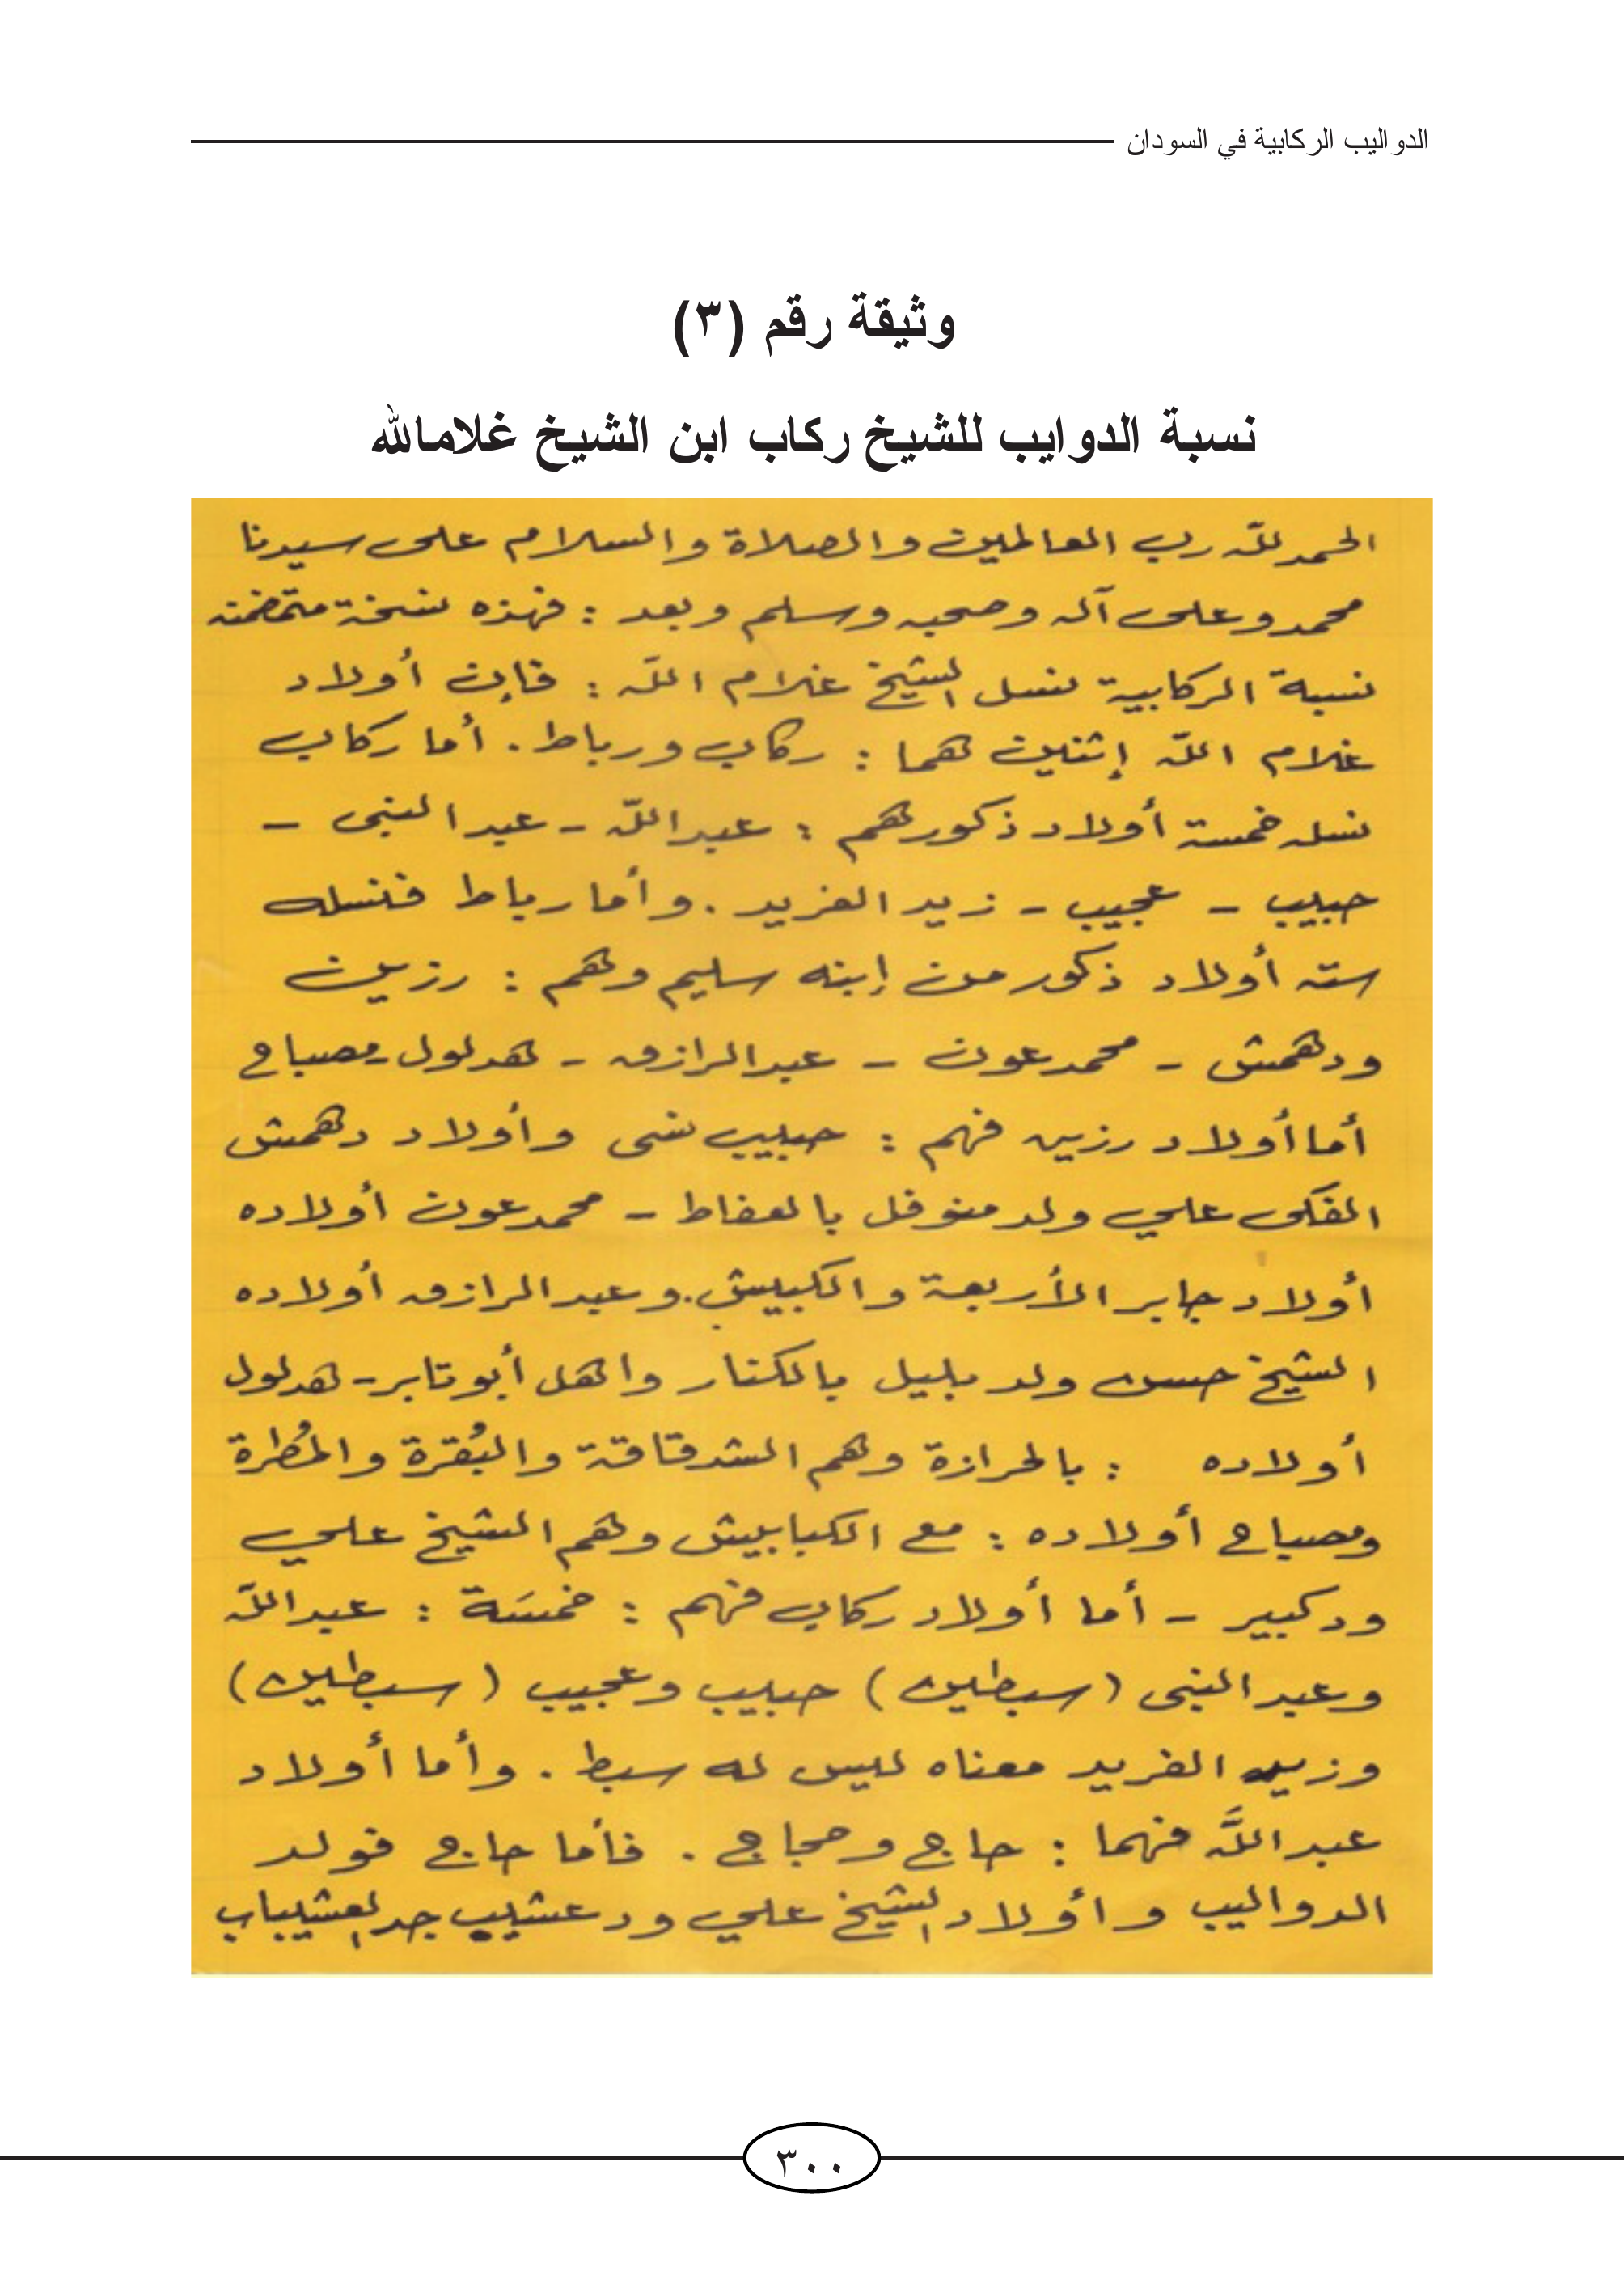 الدواليب الركابية في السودان
وثيقة رقم (٣)
نسبة الدوايب للشيخ ركاب ابن الشيخ غلامالله
الحمد لله رب العالمين والصلاة والسلام على سيدنا
محمد وعلى آله وصحبه وسلم وبعد : فهذه نسخة متضمنه
نسبة الركابية نسل الشيخ غلام الله : فإن أولاد
غلام الله إثنين هما : ركاب ورباط . أما ركاب
نسله خمسة أولاد ذكور هم : عبدالله - عبد النبى -
حبيب - عجيب - زيد الفريد . وأما رباط فنسله
سته أولاد ذكور من إبنه سليم وهم : رزين
ودهمش - محمد عون - عبد الرازق - هدلول - مصباح
أما أولاد رزين فهم : حبيب نسى وأولاد دهمش
الفكى علي ولد منوفل بالعفاط - محمد عون أولاده
أولاد جابر الأربعة والكبيش . وعبد الرازق أولاده
الشيخ حسن ولد بليل بالكنار واهل أبو تابر - هدلول
أولاده : بالحرازة وهم الشدقاقة والبُقرة والمُطرة
ومصباح أولاده : مع الكبابيش وهم الشيخ علي
ود كبير - أما أولاد ركاب فهم : خمسَة : عبدالله
وعبد النبى (سبطين) حبيب وعجيب (سبطين)
وزيد الفريد معناه ليس له سبط . وأما أولاد
عبد اللَّه فهما : حاج وحجاج . فأما حاج فولد
الدواليب وأولاد الشيخ علي ود عشيب جد العشيباب
٣٠٠